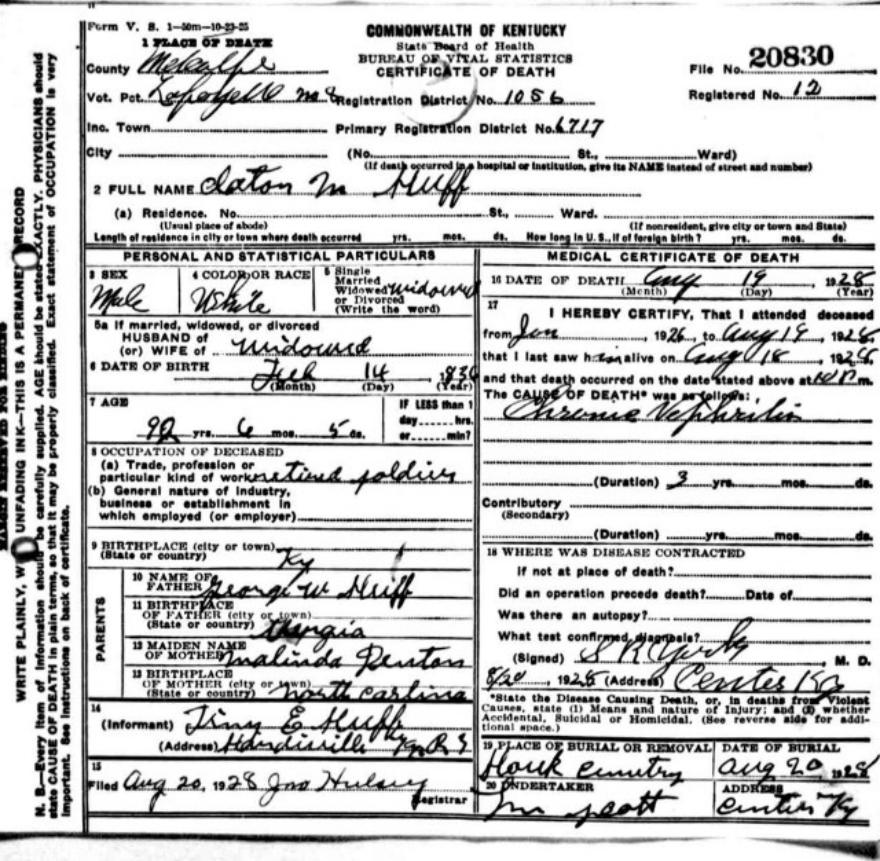 Form V. S. 1—50m—10-23-25
COMMONWEALTH OF KENTUCKY
State Board of Health
BUREAU OF VITAL STATISTICS
CERTIFICATE OF DEATH
File No. 20830
Registered No. 12
1 PLACE OF DEATH
County Metcalfe
Vot. Pct. Lafayette No 8 Registration District No. 1056
Inc. Town Primary Registration District No. 6717
City (No. St., Ward)
(If death occurred in a hospital or institution, give its NAME instead of street and number)
2 FULL NAME Claton M Huff
(a) Residence. No. St., Ward.
(Usual place of abode) (If nonresident, give city or town and State)
Length of residence in city or town where death occurred yrs. mos. ds. How long in U. S., if of foreign birth? yrs. mos. ds.
PERSONAL AND STATISTICAL PARTICULARS
3 SEX
Male
4 COLOR OR RACE
White
5 Single
Married
Widowed
or Divorced
(Write the word)
widowed
5a If married, widowed, or divorced
HUSBAND of
(or) WIFE of widowed
6 DATE OF BIRTH Feb 14 1836
(Month) (Day) (Year)
7 AGE
92 yrs. 6 mos. 5 ds.
IF LESS than 1
day hrs.
or min?
8 OCCUPATION OF DECEASED
(a) Trade, profession or
particular kind of work retired soldier
(b) General nature of Industry,
business or establishment in
which employed (or employer)
9 BIRTHPLACE (city or town)
(State or country) Ky
PARENTS
10 NAME OF
FATHER George W Huff
11 BIRTHPLACE
OF FATHER (city or town)
(State or country) Gorgia
12 MAIDEN NAME
OF MOTHER Malinda Denton
13 BIRTHPLACE
OF MOTHER (city or town)
(State or country) North Carlina
14
(Informant) Tiny E Huff
(Address) Hardyville Ky R 1
15
Filed Aug 20, 1928 Jno Hulsey
Registrar
MEDICAL CERTIFICATE OF DEATH
16 DATE OF DEATH Aug 19 1928
(Month) (Day) (Year)
17
I HEREBY CERTIFY, That I attended deceased
from Jan, 1926, to Aug 19, 1928
that I last saw him alive on Aug 18, 1928
and that death occurred on the date stated above at 10 P m.
The CAUSE OF DEATH* was as follows:
Chronic Nephritis
(Duration) 3 yrs. mos. ds.
Contributory
(Secondary)
(Duration) yrs. mos. ds.
18 WHERE WAS DISEASE CONTRACTED
If not at place of death?
Did an operation precede death? Date of
Was there an autopsy?
What test confirmed diagnosis?
(Signed) S R York, M. D.
8/20, 1928 (Address) Center Ky
*State the Disease Causing Death, or, in deaths from Violent
Causes, state (1) Means and nature of Injury; and (2) whether
Accidental, Suicidal or Homicidal. (See reverse side for addi-
tional space.)
19 PLACE OF BURIAL OR REMOVAL
Houk Cemetry
DATE OF BURIAL
Aug 20 1928
20 UNDERTAKER
M Scott
ADDRESS
Center Ky
WRITE PLAINLY, WITH UNFADING INK—THIS IS A PERMANENT RECORD
N. B.—Every item of information should be carefully supplied. AGE should be stated EXACTLY. PHYSICIANS should
state CAUSE OF DEATH in plain terms, so that it may be properly classified. Exact statement of OCCUPATION is very
important. See instructions on back of certificate.